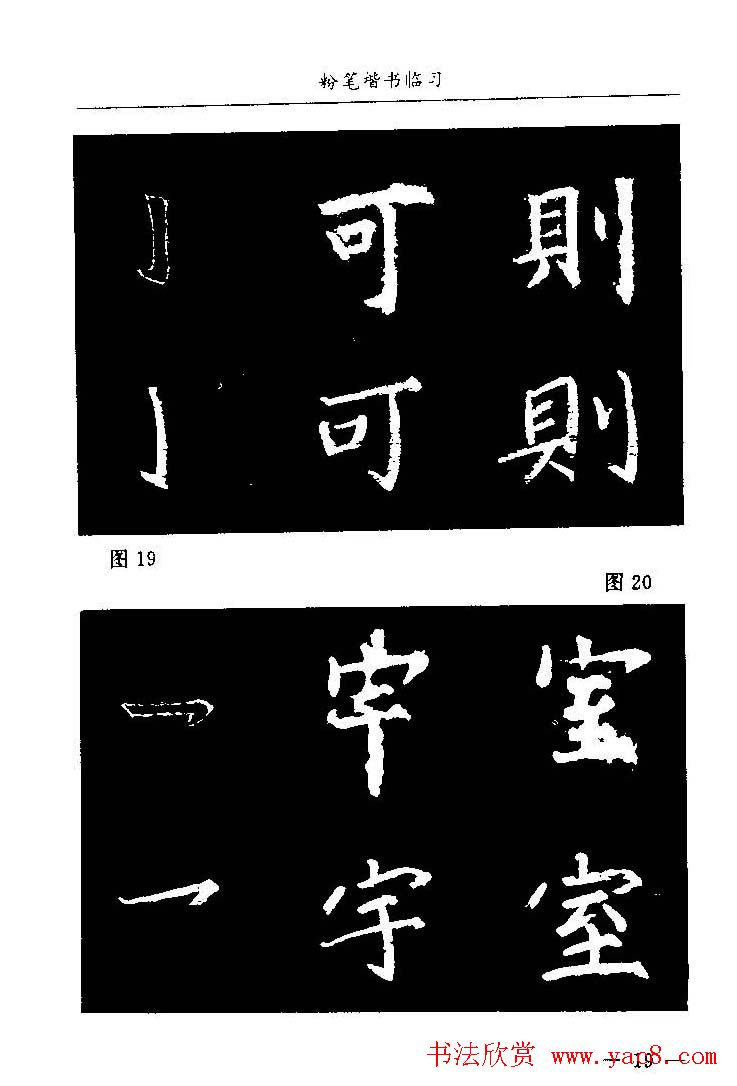 粉笔楷书临习
亅 可 則
亅 可 則
图 19
图 20
乛 宇 室
乛 宇 室
书法欣赏 www.yap8.com
— 19 —